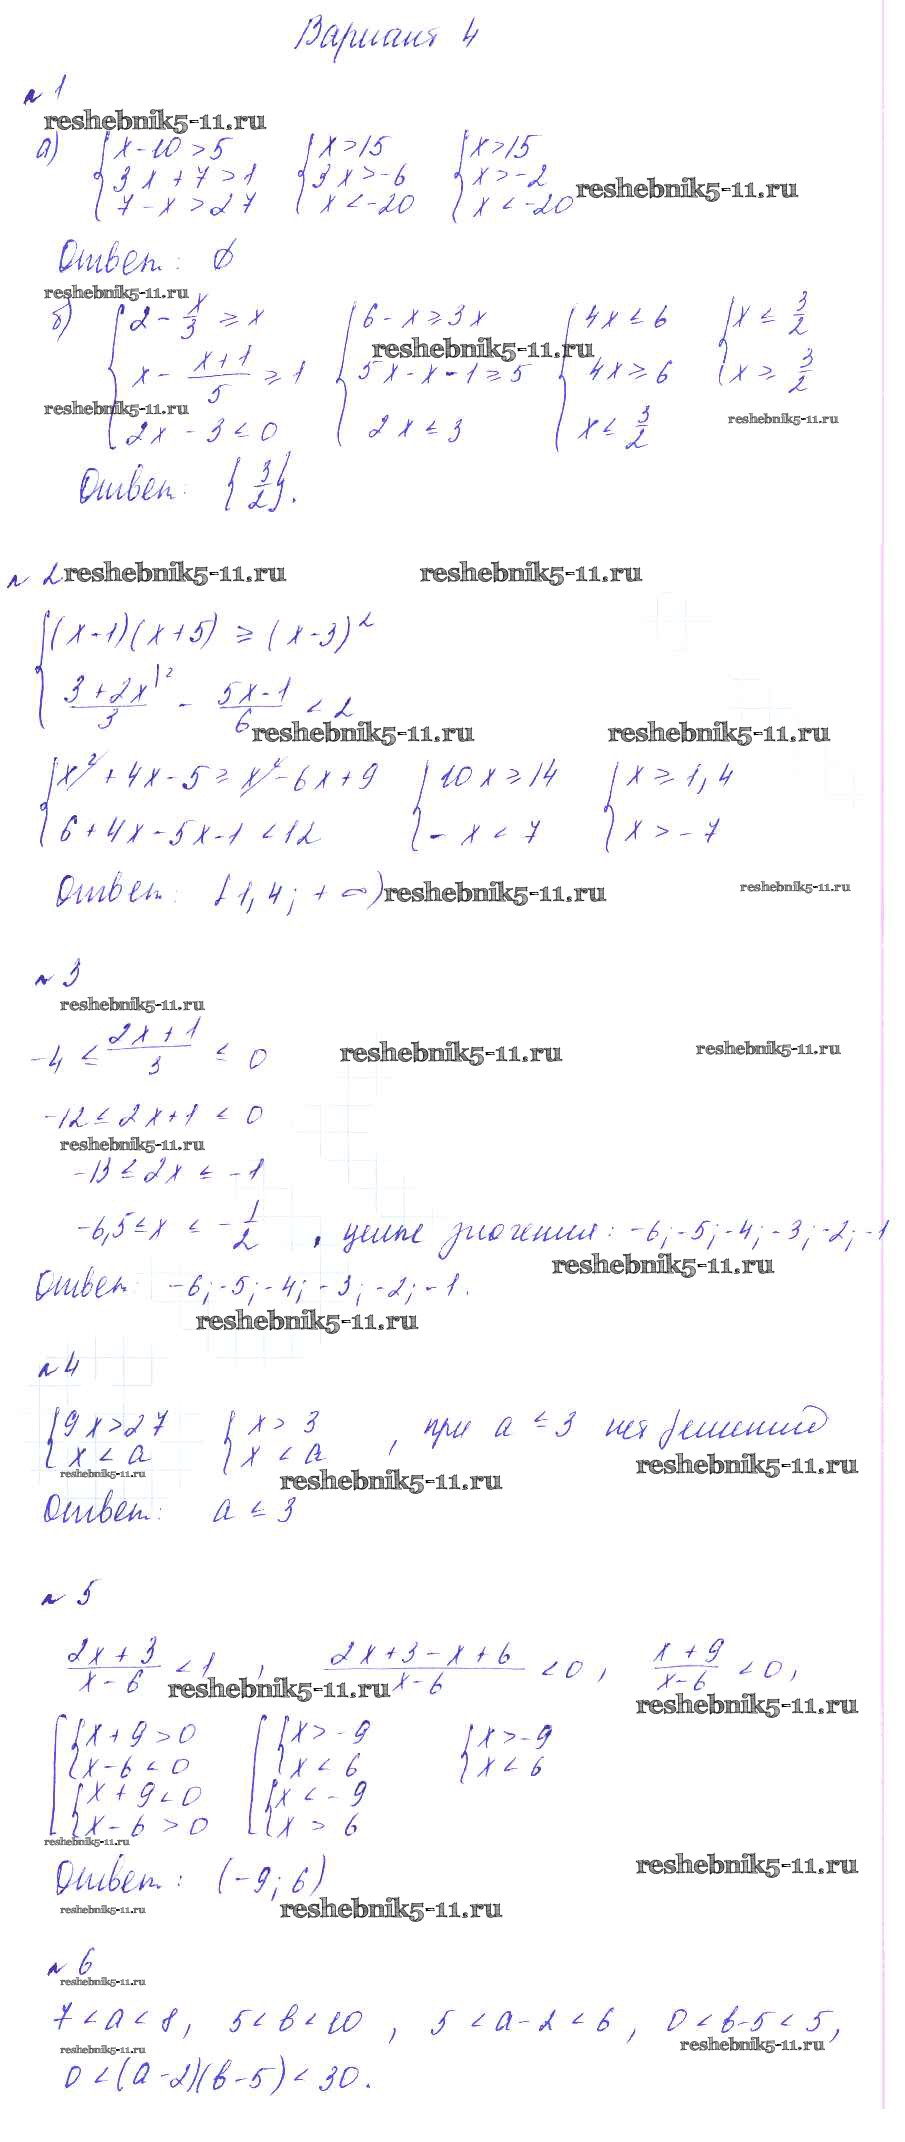 Вариант 4
№ 1
reshebnik5-11.ru
а) { x - 10 > 5 { x > 15 { x > 15
3x + 7 > 1 3x > -6 x > -2 reshebnik5-11.ru
7 - x > 27 x < -20 x < -20
Ответ: ∅
reshebnik5-11.ru
б) { 2 - x/3 ≥ x { 6 - x ≥ 3x { 4x ≤ 6 { x ≤ 3/2
reshebnik5-11.ru
x - (x+1)/5 ≥ 1 5x - x - 1 ≥ 5 4x ≥ 6 x ≥ 3/2
reshebnik5-11.ru reshebnik5-11.ru
2x - 3 ≤ 0 2x ≤ 3 x ≤ 3/2
Ответ: {3/2}.
№ 2 reshebnik5-11.ru reshebnik5-11.ru
{ (x-1)(x+5) ≥ (x-3)²
(3+2x)/3 |² - (5x-1)/6 < 2
reshebnik5-11.ru reshebnik5-11.ru
{ x² + 4x - 5 ≥ x² - 6x + 9 { 10x ≥ 14 { x ≥ 1,4
6 + 4x - 5x - 1 < 12 - x < 7 x > -7
Ответ: [1,4; +∞) reshebnik5-11.ru reshebnik5-11.ru
№ 3
reshebnik5-11.ru
-4 ≤ (2x+1)/3 ≤ 0 reshebnik5-11.ru reshebnik5-11.ru
-12 ≤ 2x+1 ≤ 0
reshebnik5-11.ru
-13 ≤ 2x ≤ -1
-6,5 ≤ x ≤ -1/2 , целые значения: -6; -5; -4; -3; -2; -1
reshebnik5-11.ru
Ответ: -6; -5; -4; -3; -2; -1.
reshebnik5-11.ru
№ 4
{ 9x > 27 { x > 3 , при a ≤ 3 нет решений
x < a x < a
reshebnik5-11.ru reshebnik5-11.ru reshebnik5-11.ru
Ответ: a ≤ 3
№ 5
(2x+3)/(x-6) < 1 , (2x+3-x+6)/(x-6) < 0 , (x+9)/(x-6) < 0 ,
reshebnik5-11.ru reshebnik5-11.ru
[ { x+9 > 0 [ { x > -9 { x > -9
x-6 < 0 x < 6 x < 6
{ x+9 < 0 { x < -9
x-6 > 0 x > 6
reshebnik5-11.ru
Ответ: (-9; 6) reshebnik5-11.ru
reshebnik5-11.ru reshebnik5-11.ru
№ 6
reshebnik5-11.ru
7 < a < 8, 5 < b < 10 , 5 < a-2 < 6 , 0 < b-5 < 5 ,
reshebnik5-11.ru reshebnik5-11.ru
0 < (a-2)(b-5) < 30.